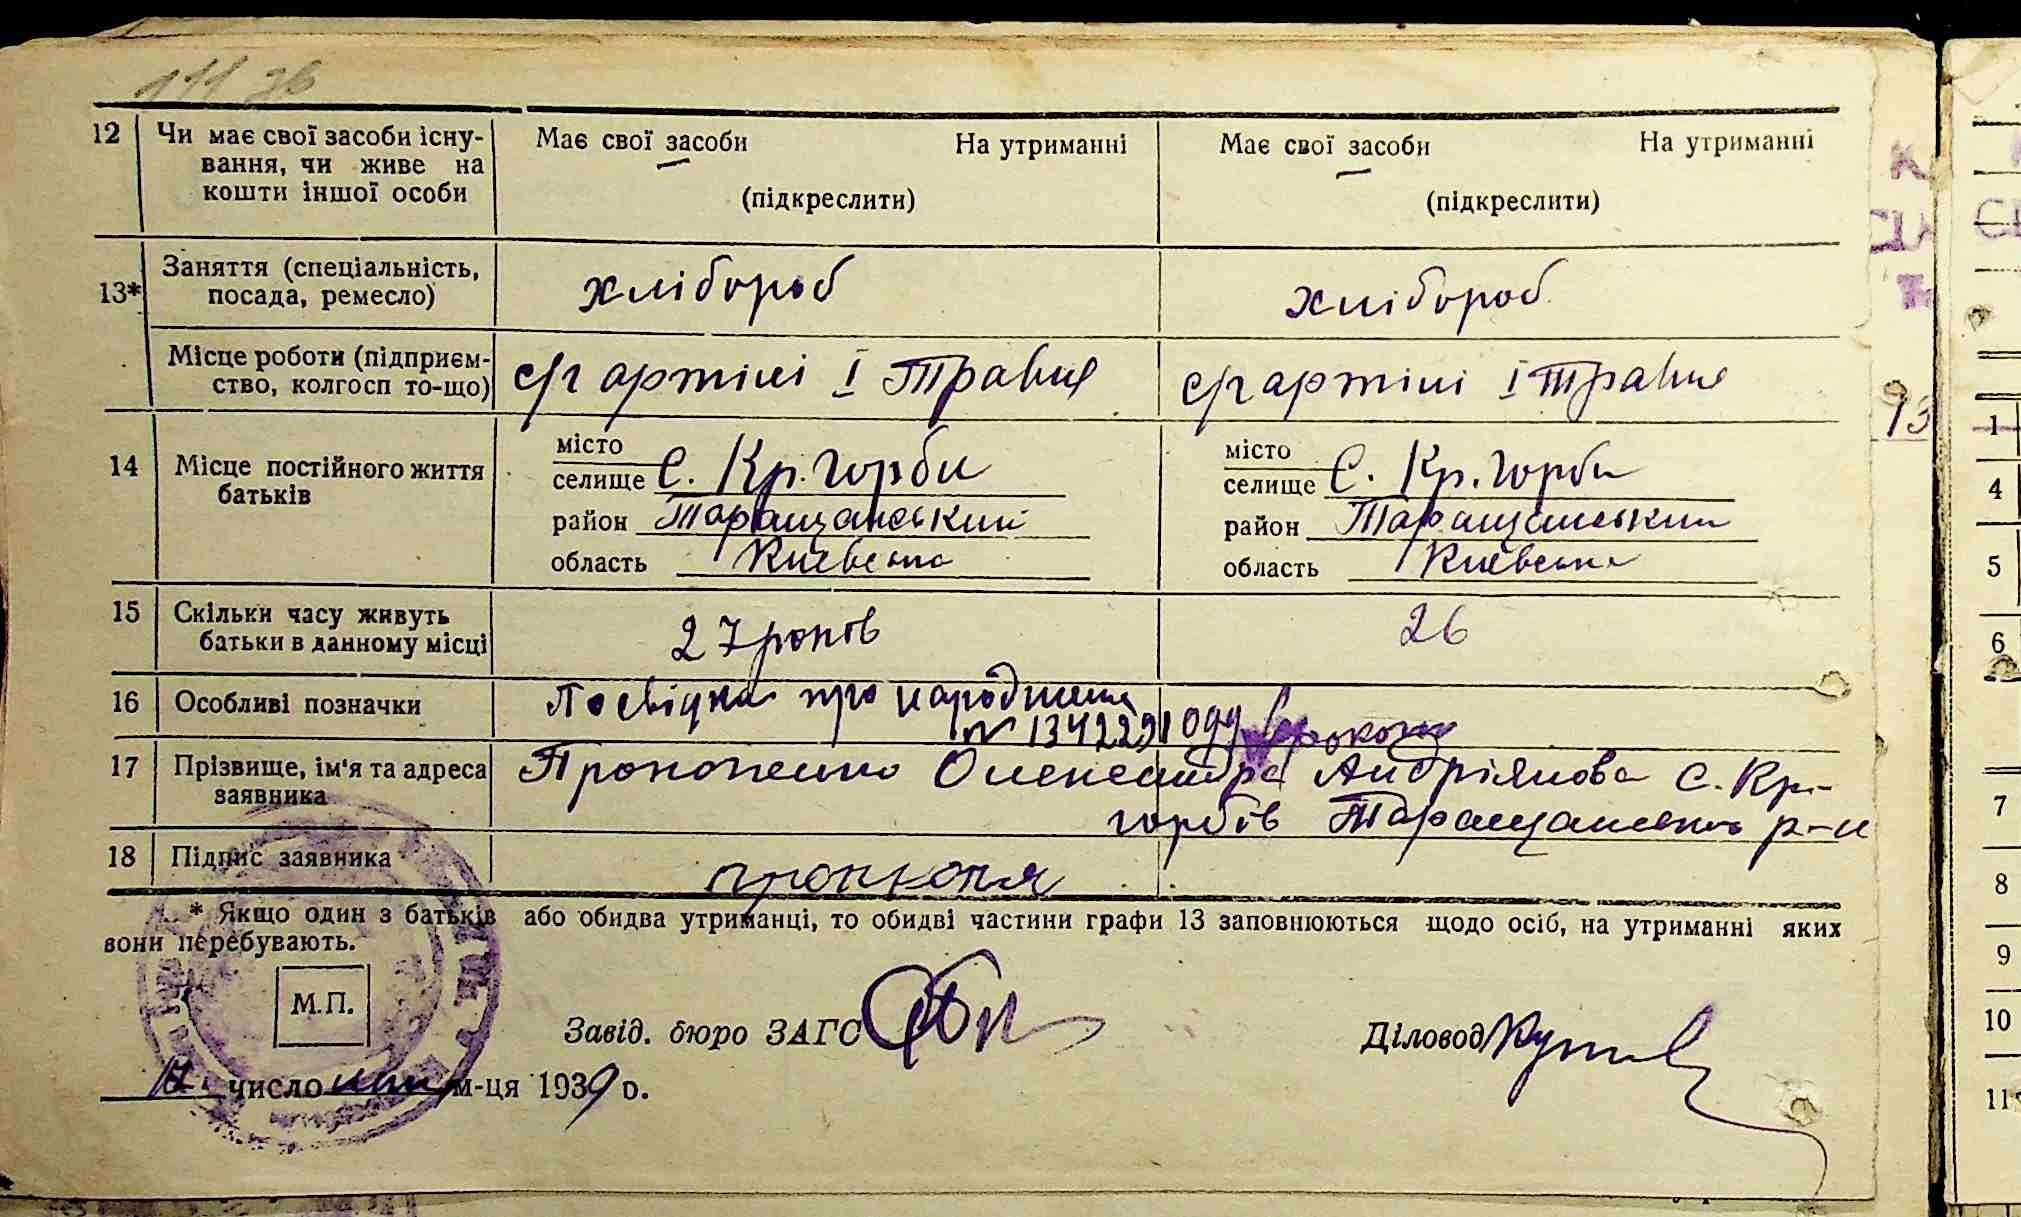 12 Чи має свої засоби існу- Має свої засоби На утриманні Має свої засоби На утриманні
вання, чи живе на
кошти іншої особи (підкреслити) (підкреслити)
13* Заняття (спеціальність, хлібороб хлібороб
посада, ремесло)
Місце роботи (підприєм- с/г артілі І Травня с/г артілі І Травня
ство, колгосп то-що)
14 Місце постійного життя батьків
місто місто
селище С. Кр. Горби селище С. Кр. Горби
район Таращанський район Таращанський
область Київська область Київська
15 Скільки часу живуть 27 років 26
батьки в данному місці
16 Особливі позначки Посвідка про народження
№ 1342291
17 Прізвище, ім'я та адреса Прокопенко Олександра Андріянова с. Кр-
заявника горбів Таращанського р-н
18 Підпис заявника
* Якщо один з батьків або обидва утриманці, то обидві частини графи 13 заповнюються щодо осіб, на утриманні яких
вони перебувають.
М.П.
Завід. бюро ЗАГС Діловод
число м-ця 1939 р.
К
93
1
4
5
6
7
8
9
10
11